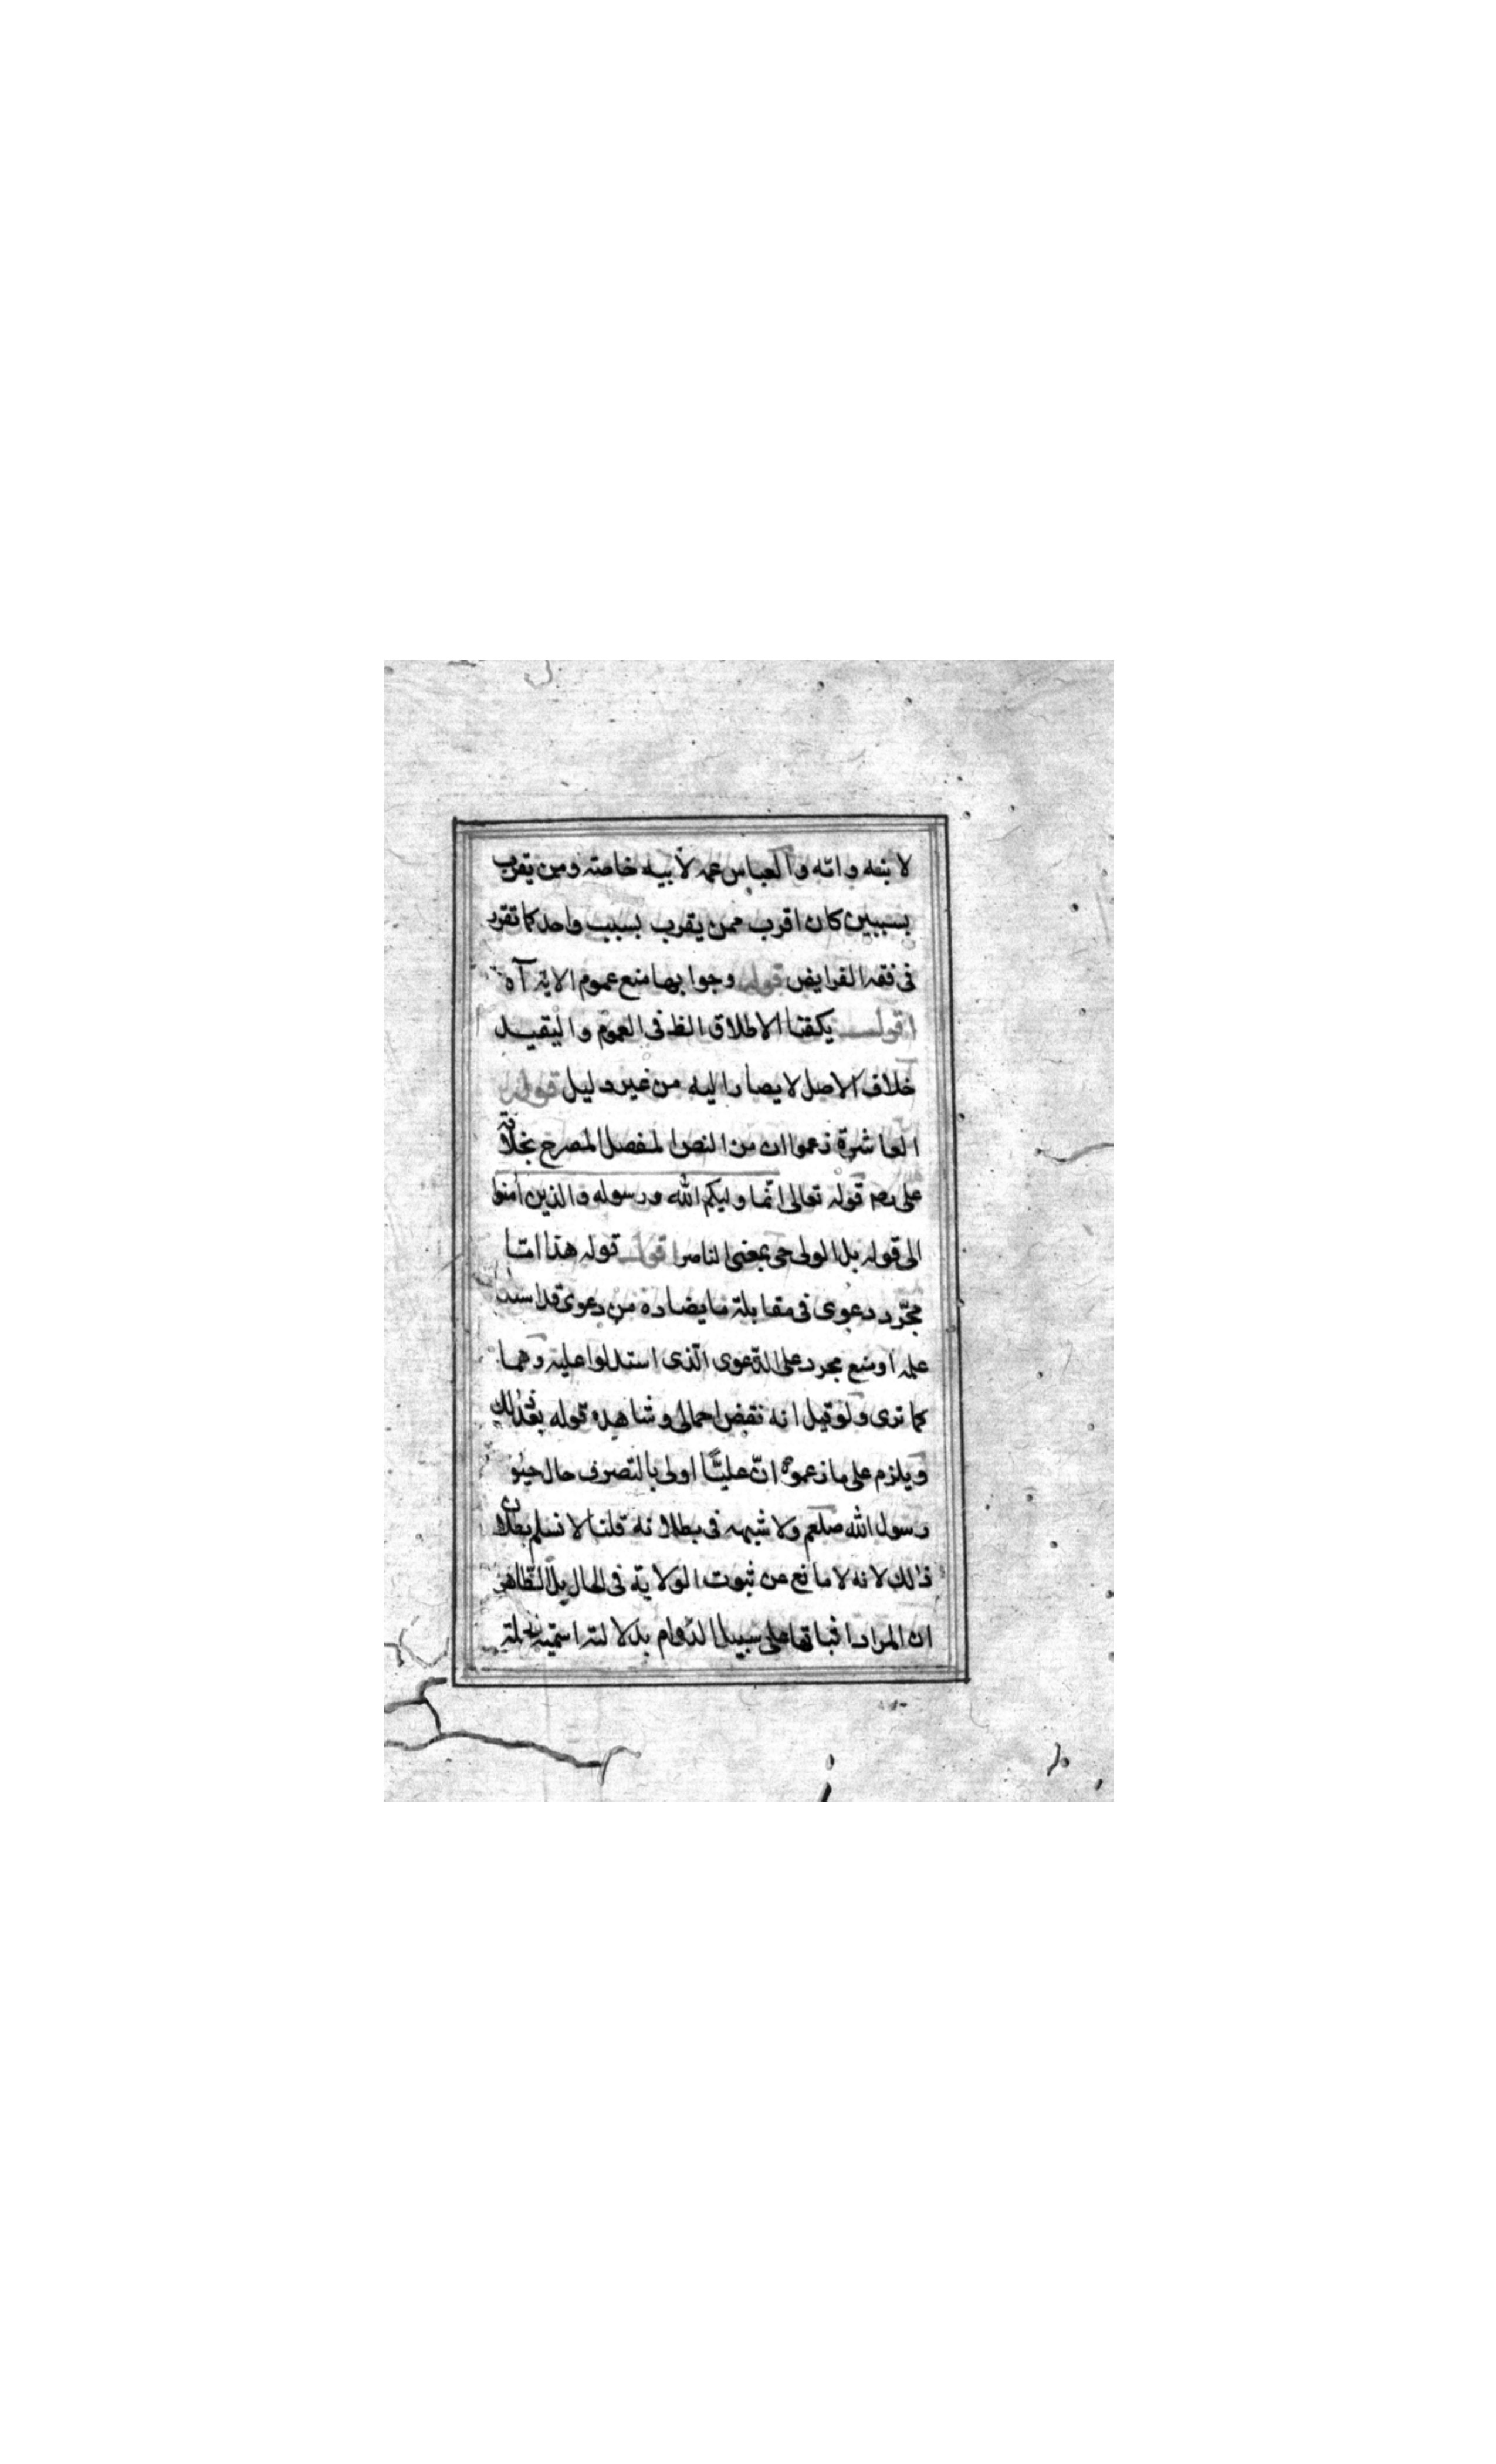 لابيه وامه والعباس عمه لابيه خاصة ومن يقرب
بسببين كان اقرب ممن يقرب بسبب واحد كما تقرر
فى فقه الفرايض قوله وجوابها منع عموم الاية آه
اقول يكفنا الاطلاق الظ فى العموم والتقييد
خلاف الاصل لا يصار اليه من غير دليل قوله
العاشرة زعموا ان من النص المفصل المصرح بخلافة
على رضه قوله تعالى انما وليكم الله ورسوله والذين امنوا
الى قوله بل الولى بمعنى الناصر اقول قوله هذا اما
مجرد دعوى فى مقابلة ما يضاده من دعوى قد استدل
عليه او منع مجرد على الدعوى الذى استدلوا عليه وهما
كما ترى ولو قيل انه نقض اجمالى وشاهده قوله بعد ذلك
ويلزم على ما زعموه ان عليًا اولى بالتصرف حال حيوة
رسول الله صلعم ولا شبهه فى بطلانه قلنا لا نسلم بطلان
ذلك لانه لا مانع عن ثبوت الولاية فى الحال بل الظاهر
ان المراد اثباتها على سبيل الدوام بدلالة اسمية الجملة